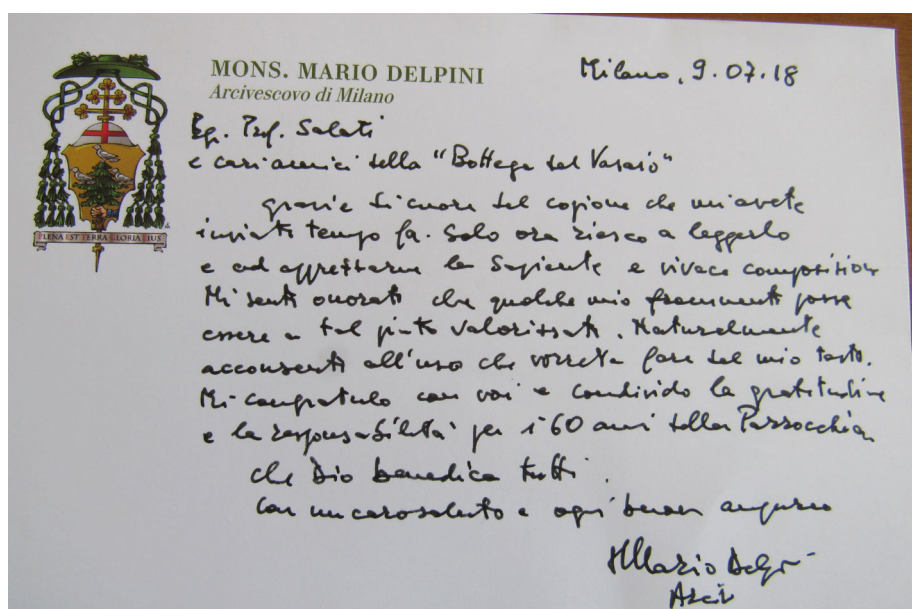 MONS. MARIO DELPINI
Arcivescovo di Milano
Milano, 9.07.18
Eg. Prof. Salati
e cari amici della "Bottega del Vasaio"
grazie di cuore del copione che mi avete
inviato tempo fa. Solo ora riesco a leggerlo
e ad apprezzarne la sapiente e vivace composizione
Mi sento onorato che qualche mio frammento possa
essere a tal punto valorizzato. Naturalmente
acconsento all'uso che vorrete fare del mio testo.
Mi congratulo con voi e condivido la gratitudine
e la responsabilità per i 60 anni della Parrocchia
PLENA EST TERRA GLORIA EIUS
che Dio benedica tutti.
con un caro saluto e ogni buon augurio
+ Mario Delpini
Arciv